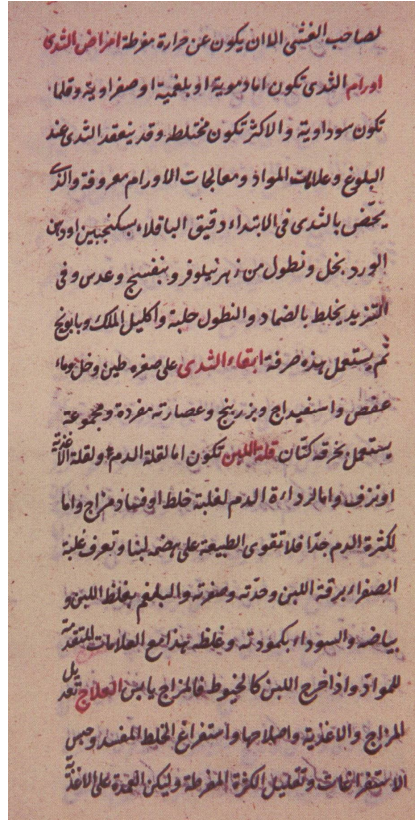 لصاحب الغشى الا ان يكون عن حرارة مفرطة امراض الثدى
اورام الثدى تكون اما دموية او بلغمية او صفراوية وقلما
تكون سوداوية والاكثر تكون مختلط وقد ينعقد الثدى عند
البلوغ وعلامات المواد ومعالجات الاورام معروفة والذى
يختص بالثدى فى الابتداء دقيق الباقلاء بسكنجبين اودهن
الورد بخل ونطول من زهر نيلوفر وبنفسج وعدس وفى
التزيد يخلط بالضماد والنطول حلبة واكليل الملك وبابونج
ثم يستعمل بهذه صرفة ابقاء الثدى على صغره طين وخل وماء
عفص واسفيداج وبزربنج وعصارته مفردة ومجموعة
يستعمل بخرقة كتان قلة اللبن تكون اما لقلة الدم ولقلة الاغذية
او نزف واما لرداءة الدم لغلبة خلط او فساد مزاج واما
لكثرة الدم جدا فلا تقوى الطبيعة على هضمه لبنا وتعرف غلبة
الصفراء برقة اللبن وحدته وصفرته والبلغم بغلظ اللبن و
بياضه والسوداء بكمودته وغلظه بهذا مع العلامات المتقدمة
للمواد واذا خرج اللبن كالخيوط فالمزاج يابس العلاج تعديل
المزاج والاغذية واصلاحها واستفراغ الخلط المفسد وحبس
الاستفراغات وتقليل الكثرة المفرطة وليكن العمدة على الاغذية